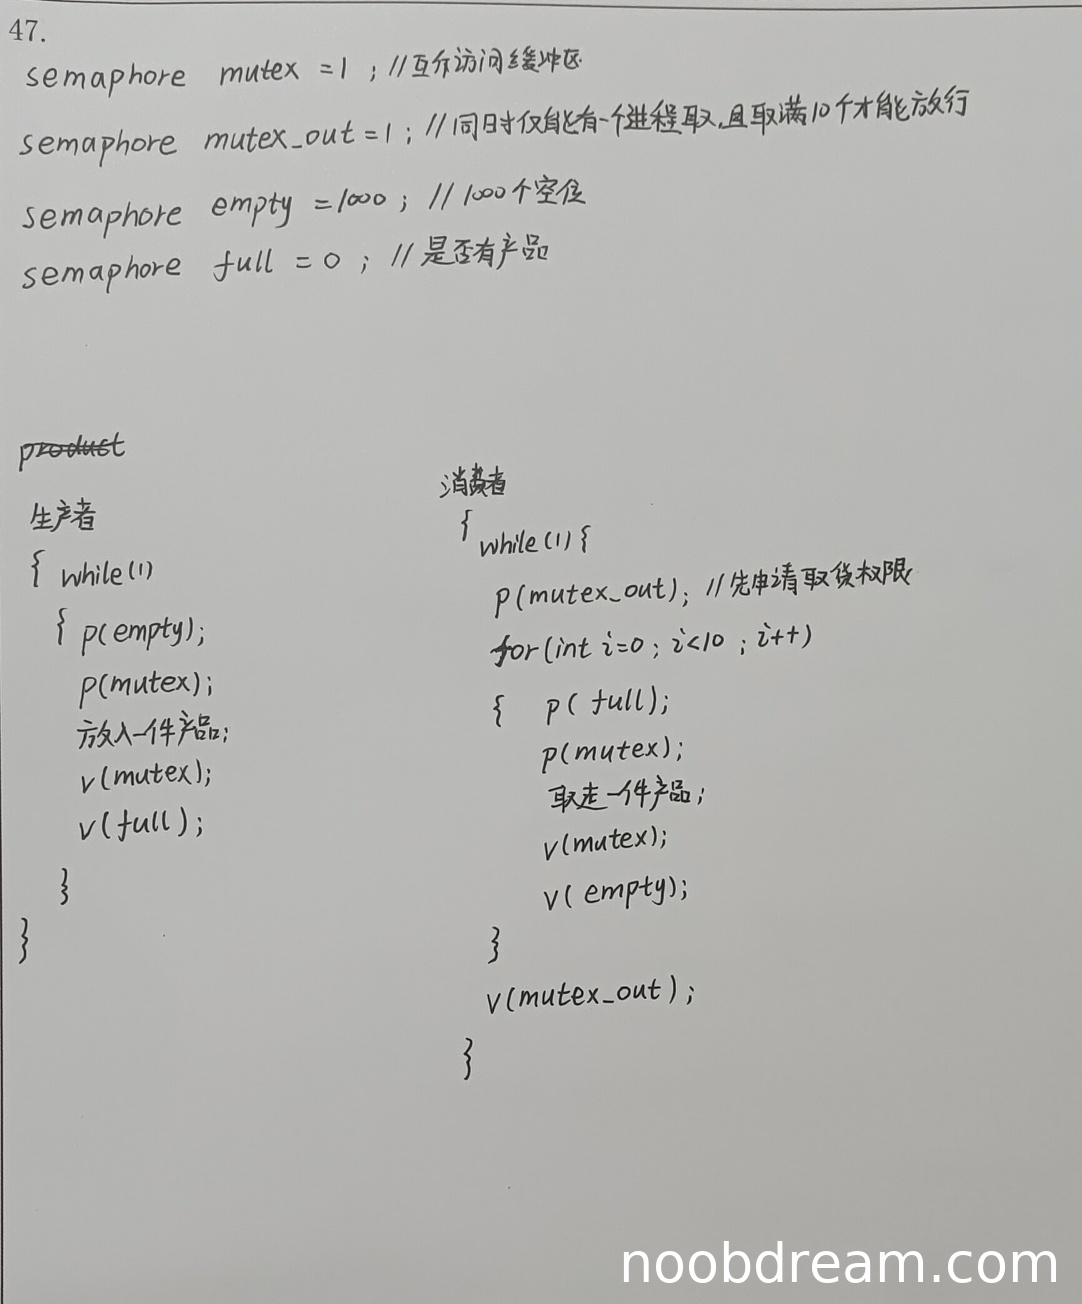 47.
semaphore mutex = 1 ; //互斥访问缓冲区
semaphore mutex_out = 1 ; //同时仅能有一个进程取,且取满10个才能放行
semaphore empty = 1000 ; // 1000个空位
semaphore full = 0 ; // 是否有产品
product
生产者
{ while(1)
{ p(empty);
p(mutex);
放入一件产品;
v(mutex);
v(full);
}
}
消费者
{ while(1) {
p(mutex_out); //先申请取货权限
for(int i=0 ; i<10 ; i++)
{ p( full);
p(mutex);
取走一件产品;
v(mutex);
v( empty);
}
v(mutex_out);
}
noobdream.com